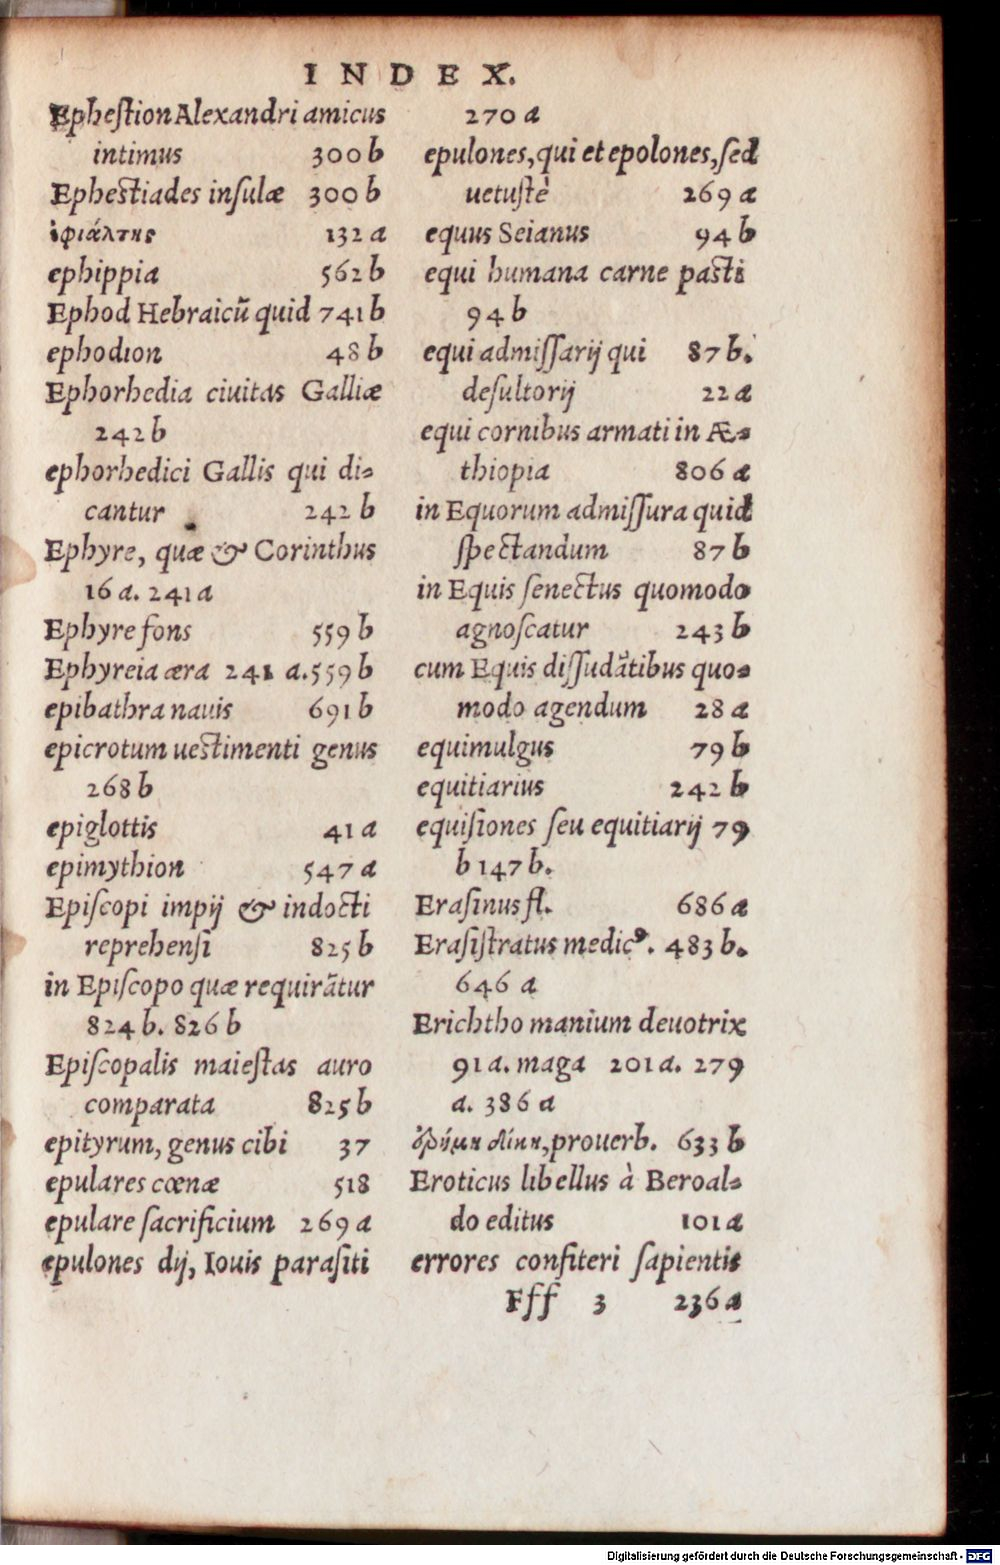 INDEX.
Epheſtion Alexandri amicus
intimus 300 b
Epheſtiades inſulæ 300 b
ἐφιάλτης 132 a
ephippia 562 b
Ephod Hebraicū quid 741 b
ephodion 48 b
Ephorhedia ciuitas Galliæ
242 b
ephorhedici Gallis qui di-
cantur 242 b
Ephyre, quæ & Corinthus
16 a. 241 a
Ephyre fons 559 b
Ephyreia æra 241 a. 559 b
epibathra nauis 691 b
epicrotum ueſtimenti genus
268 b
epiglottis 41 a
epimythion 547 a
Epiſcopi impij & indocti
reprehenſi 825 b
in Epiſcopo quæ requirātur
824 b. 826 b
Epiſcopalis maieſtas auro
comparata 825 b
epityrum, genus cibi 37
epulares cœnæ 518
epulare ſacrificium 269 a
epulones dij, Iouis paraſiti
270 a
epulones, qui et epolones, ſed
uetuſtè 269 a
equus Seianus 94 b
equi humana carne paſti
94 b
equi admiſſarij qui 87 b.
deſultorij 22 a
equi cornibus armati in Æ-
thiopia 806 a
in Equorum admiſſura quid
ſpectandum 87 b
in Equis ſenectus quomodo
agnoſcatur 243 b
cum Equis diſſudātibus quo-
modo agendum 28 a
equimulgus 79 b
equitiarius 242 b
equiſiones ſeu equitiarij 79
b 147 b.
Eraſinus fl. 686 a
Eraſiſtratus medicꝰ. 483 b.
646 a
Erichtho manium deuotrix
91 a. maga 201 a. 279
a. 386 a
ἐρήμη δίκη, prouerb. 633 b
Eroticus libellus à Beroal-
do editus 101 a
errores confiteri ſapientis
Fff 3 236 a
Digitalisierung gefördert durch die Deutsche Forschungsgemeinschaft - DFG